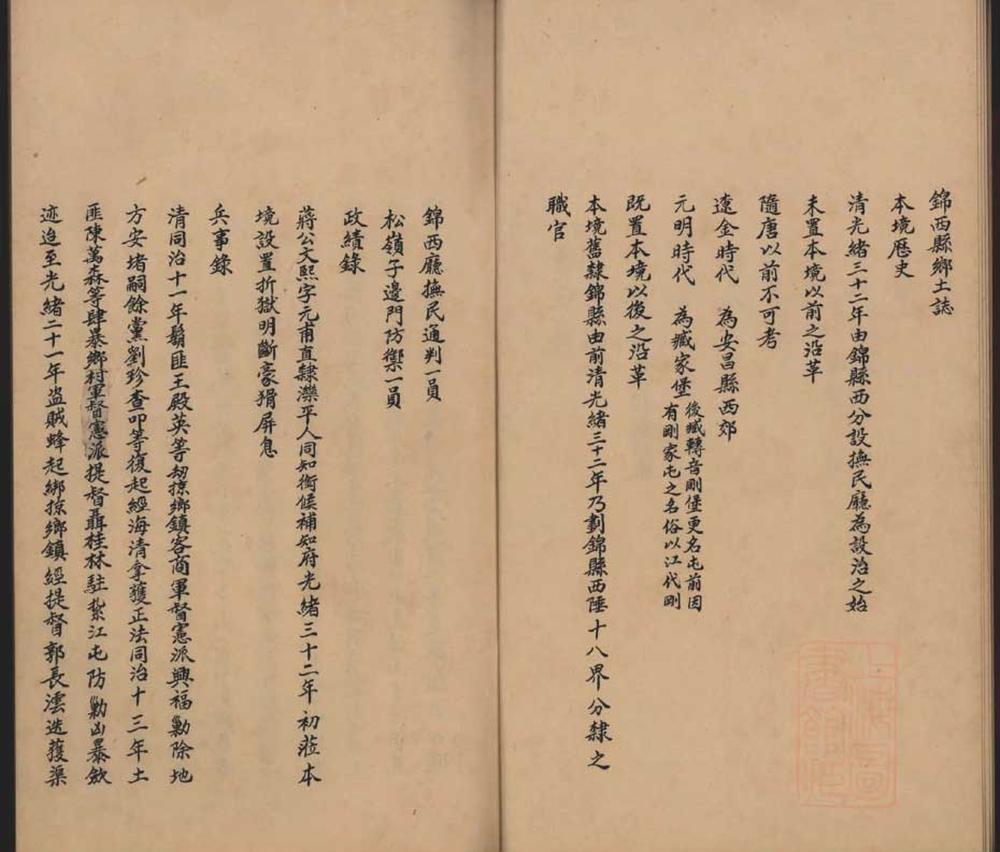 錦西縣鄉土誌
本境歷史
清光緒三十二年由錦縣西分設撫民廳為設治之始
未置本境以前之沿革
隨唐以前不可考
遼金時代 為安昌縣西郊
元明時代 為臧家堡 後臧轉音剛堡更名屯前因有剛家屯之名俗以江代剛
既置本境以後之沿革
本境舊隸錦縣由前清光緒三十二年乃劃錦縣西陲十八界分隸之
職官
錦西廳撫民通判一員
松嶺子邊門防禦一員
政績錄
蔣公文熙字元甫直隸灤平人同知銜候補知府光緒三十二年初蒞本
境設置折獄明斷豪猾屏息
兵事錄
清同治十一年鬍匪王殿英等刼掠鄉鎮客商軍督憲派興福勦除地
方安堵嗣餘黨劉珍查叩等復起經海清拿獲正法同治十三年土
匪陳萬森等肆暴鄉村軍督憲派提督聶桂林駐紮江屯防勦凶暴歛
迹迨至光緒二十一年盗賊蜂起綁掠鄉鎮經提督郭長澐迭獲渠
上海圖書館藏